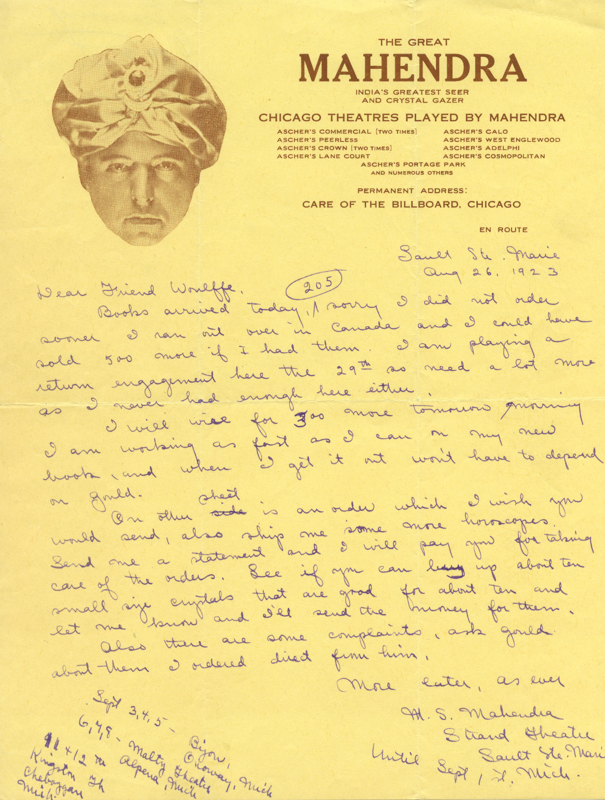 THE GREAT
MAHENDRA
INDIA'S GREATEST SEER
AND CRYSTAL GAZER
CHICAGO THEATRES PLAYED BY MAHENDRA
ASCHER'S COMMERCIAL (TWO TIMES)
ASCHER'S PEERLESS
ASCHER'S CROWN (TWO TIMES)
ASCHER'S LANE COURT
ASCHER'S CALO
ASCHER'S WEST ENGLEWOOD
ASCHER'S ADELPHI
ASCHER'S COSMOPOLITAN
ASCHER'S PORTAGE PARK
AND NUMEROUS OTHERS
PERMANENT ADDRESS:
CARE OF THE BILLBOARD, CHICAGO
EN ROUTE
Sault Ste. Marie
Aug 26, 1923
Dear Friend Woulffe.
205
Books arrived today, sorry I did not order
sooner I ran out over in Canada and I could have
sold 500 more if I had them. I am playing a
return engagement here the 29th so need a lot more
as I never had enough here either.
I will wire for 300 more tomorrow morning
I am working as fast as I can on my new
book, and when I get it out won't have to depend
on Gould.
On other side sheet is an order which I wish you
would send, also ship me some more horoscopes.
Send me a statement and I will pay you for taking
care of the orders. See if you can buy up about ten
small size crystals that are good for about ten and
let me know and I'll send the money for them.
Also there are some complaints, ask Gould
about them I ordered direct from him.
More later, as ever
M. S. Mahendra
Strand Theatre
Sault Ste. Marie
Until Sept 1, Mich.
Sept 3, 4, 5 - Bijou,
Onoway, Mich
6, 7, 8 - Maltz Theatre
Alpena, Mich
11 + 12 th
Kingston Th
Cheboygan
Mich.